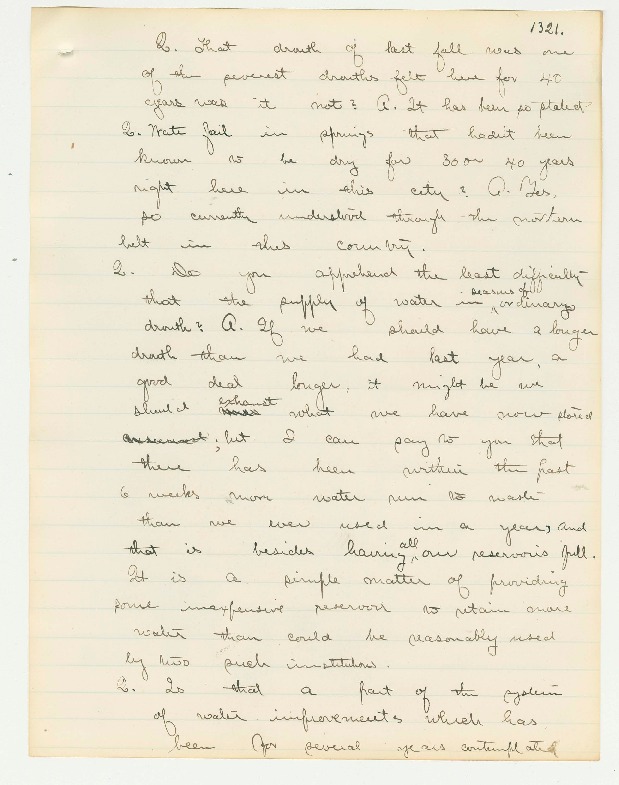 1321.
Q. That drouth of last fall was one
of the severest drouths felt here for 40
years was it not? A. It has been so stated.
Q. Water fail in springs that hadn't been
known to be dry for 30 or 40 years
right here in this city? A. Yes,
so currently understood through the northern
belt in this country.
Q. Do you apprehend the least difficulty
that the supply of water in seasons of ordinary
drouth? A. If we should have a longer
drouth than we had last year, a
good deal longer, it might be we
should exhaust what we have now stored
; but I can say to you that
there has been within the past
6 weeks more water run to waste
than we ever used in a year, and
that is besides having all our reservoirs full.
It is a simple matter of providing
some inexpensive reservoir to retain more
water than could be reasonably used
by two such institutions.
Q. Is that a part of the system
of water improvements which has
been for several years contemplated